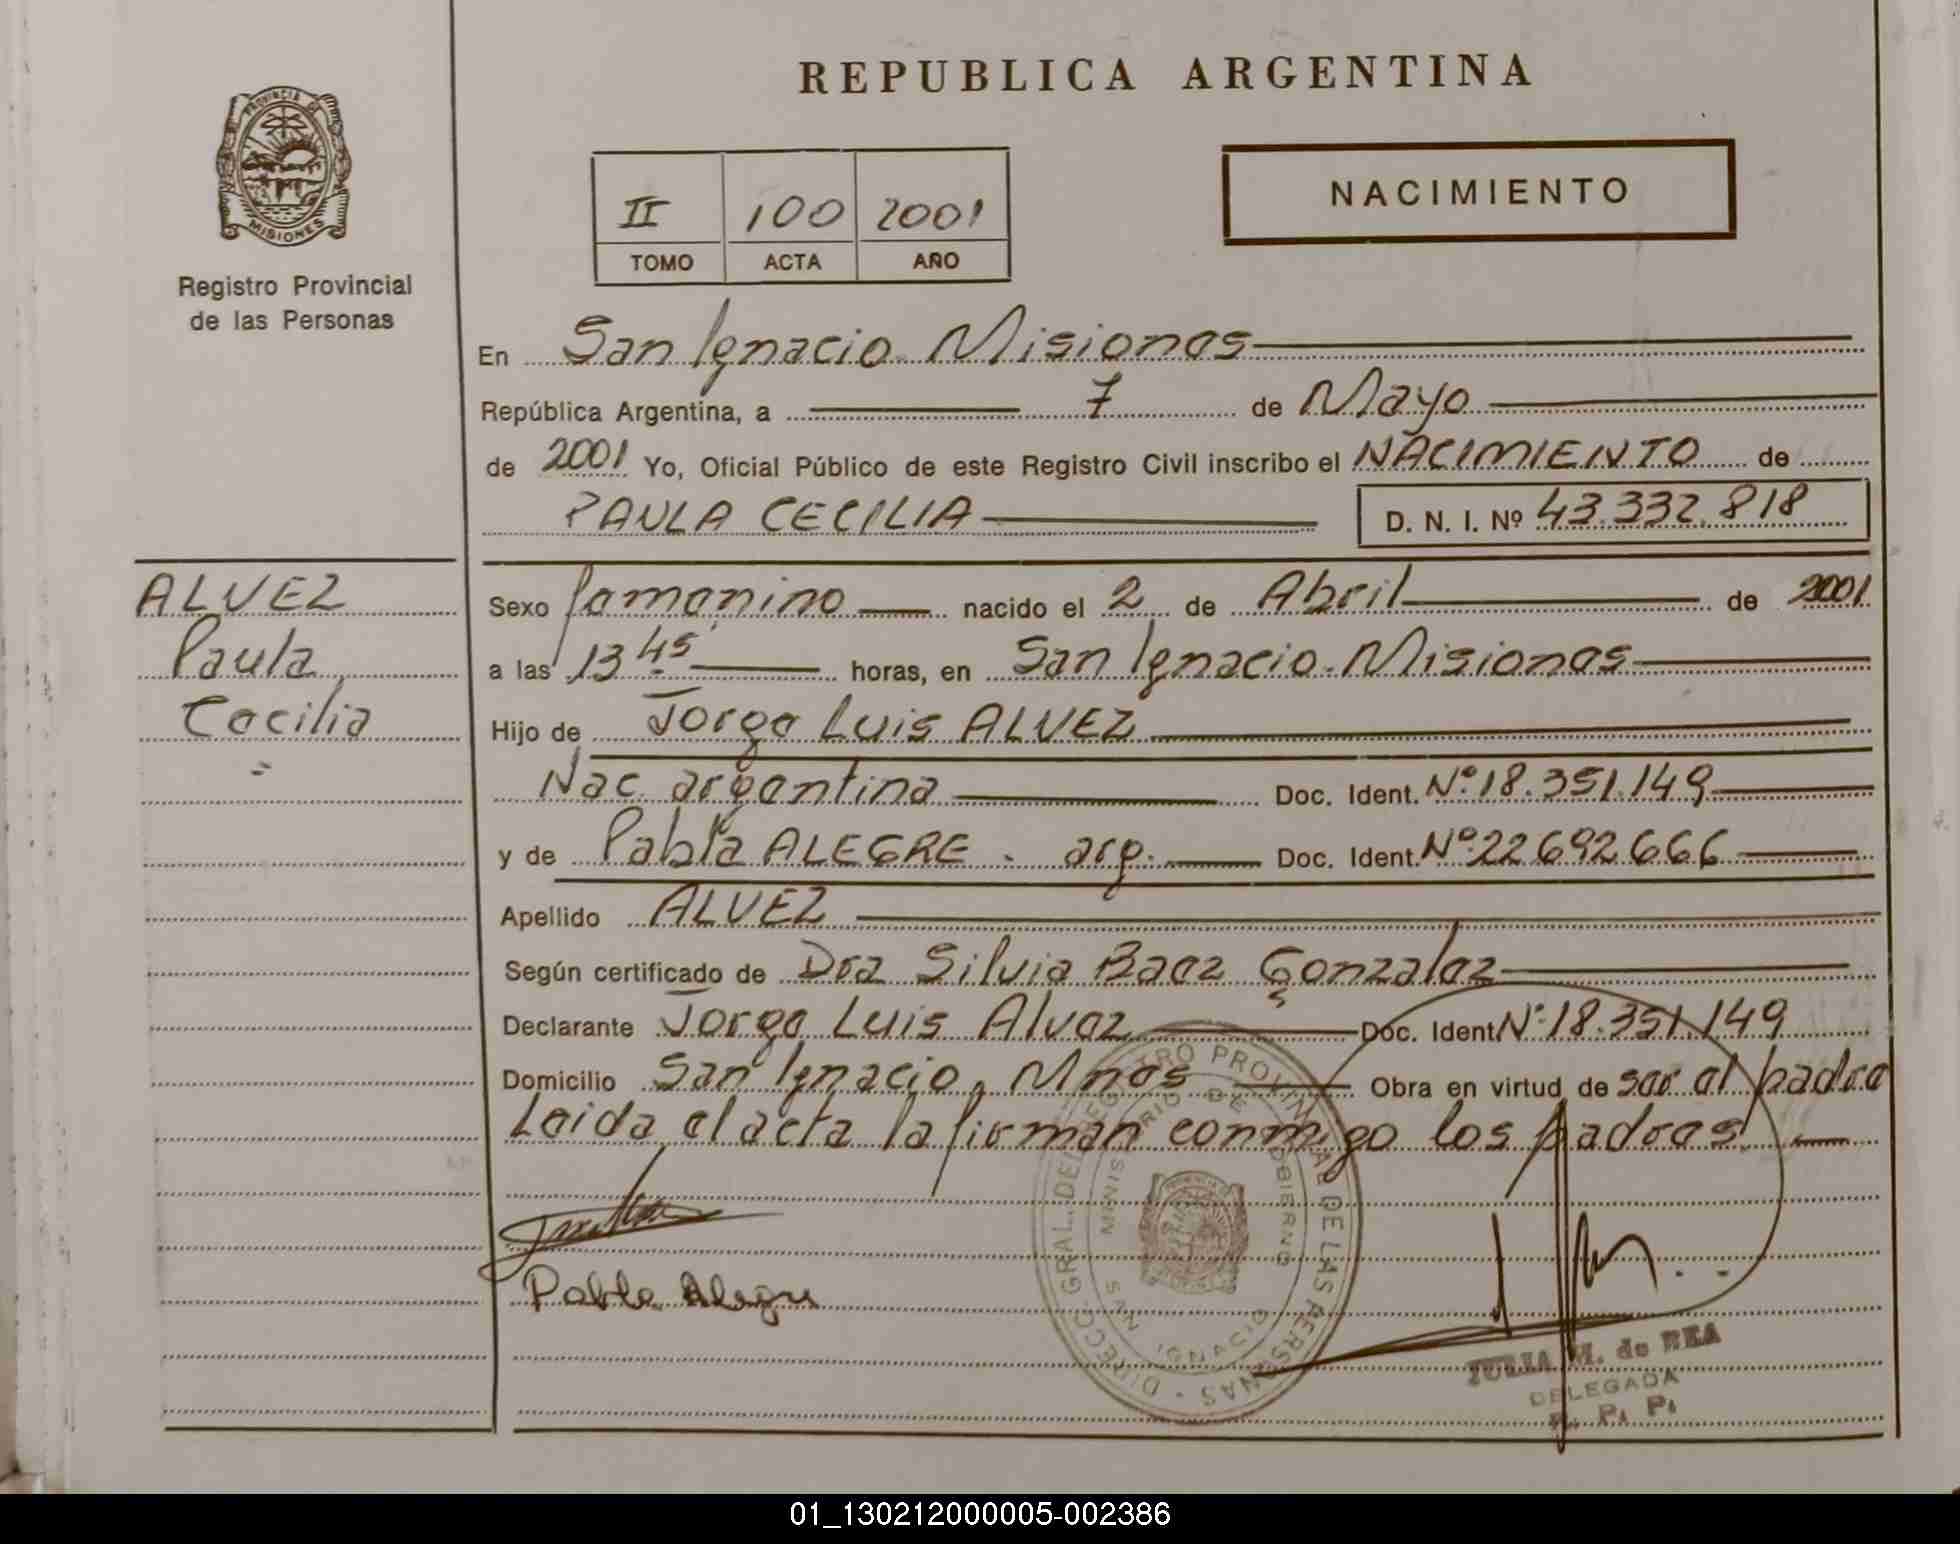 REPUBLICA ARGENTINA
PROVINCIA DE
MISIONES
Registro Provincial
de las Personas
II 100 2001
TOMO ACTA AÑO
NACIMIENTO
En San Ignacio Misiones
República Argentina, a 7 de Mayo
de 2001 Yo, Oficial Público de este Registro Civil inscribo el NACIMIENTO de
PAULA CECILIA D. N. I. Nº 43.332.818
ALVEZ
Paula
Cecilia
Sexo femenino nacido el 2 de Abril de 2001
a las 13 45 horas, en San Ignacio. Misiones
Hijo de Jorge Luis ALVEZ
Nac. argentina Doc. Ident. Nº 18.351.149
y de Pabla ALEGRE. arg. Doc. Ident. Nº 22692666
Apellido ALVEZ
Según certificado de Dra Silvia Baez Gonzalez
Declarante Jorge Luis Alvez Doc. Ident. Nº 18.351.149
Domicilio San Ignacio, Mnes Obra en virtud de ser el padre
Leida el acta la firman conmigo los padres.
Pabla Alegre
DIRECC. GRAL. DEL REGISTRO PROVINCIAL DE LAS PERSONAS
MINISTERIO DE GOBIERNO
SAN IGNACIO
JULIA M. de REA
DELEGADA
R. P. P.
01_130212000005-002386